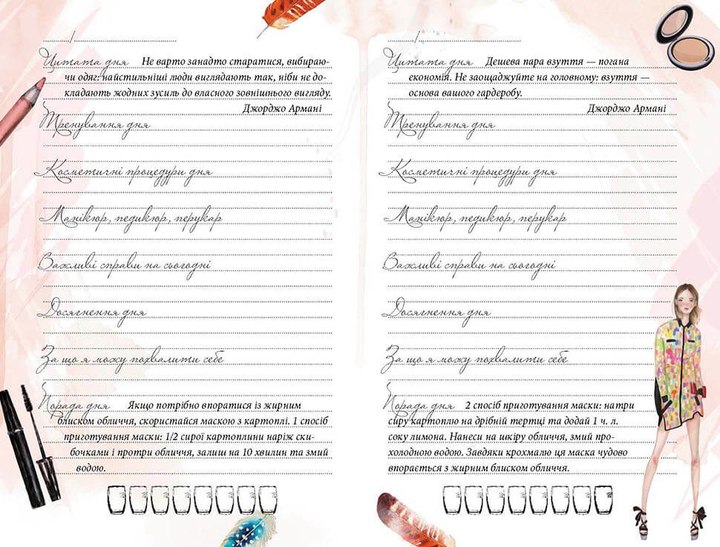 Цитата дня Не варто занадто старатися, вибираю-
чи одяг: найстильніші люди виглядають так, ніби не до-
кладають жодних зусиль до власного зовнішнього вигляду.
Джорджо Армані
Тренування дня
Косметичні процедури дня
Манікюр, педикюр, перукар
Важливі справи на сьогодні
Досягнення дня
За що я можу похвалити себе
Порада дня Якщо потрібно впоратися із жирним
блиском обличчя, скористайся маскою з картоплі. 1 спосіб
приготування маски: 1/2 сирої картоплини наріж ски-
бочками і протри обличчя, залиш на 10 хвилин та змий
водою.
Цитата дня Дешева пара взуття — погана
економія. Не заощаджуйте на головному: взуття —
основа вашого гардеробу.
Джорджо Армані
Тренування дня
Косметичні процедури дня
Манікюр, педикюр, перукар
Важливі справи на сьогодні
Досягнення дня
За що я можу похвалити себе
Порада дня 2 спосіб приготування маски: натри
сиру картоплю на дрібній тертці та додай 1 ч. л.
соку лимона. Нанеси на шкіру обличчя, змий про-
холодною водою. Завдяки крохмалю ця маска чудово
впорається з жирним блиском обличчя.